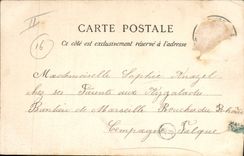 II
16
CARTE POSTALE
Ce côté est exclusivement réservé à l'adresse
Mademoiselle Sophie
chez ses Parents aux Aygalades
Banlieue de Marseille Bouches du Rhône
Campagne Falque